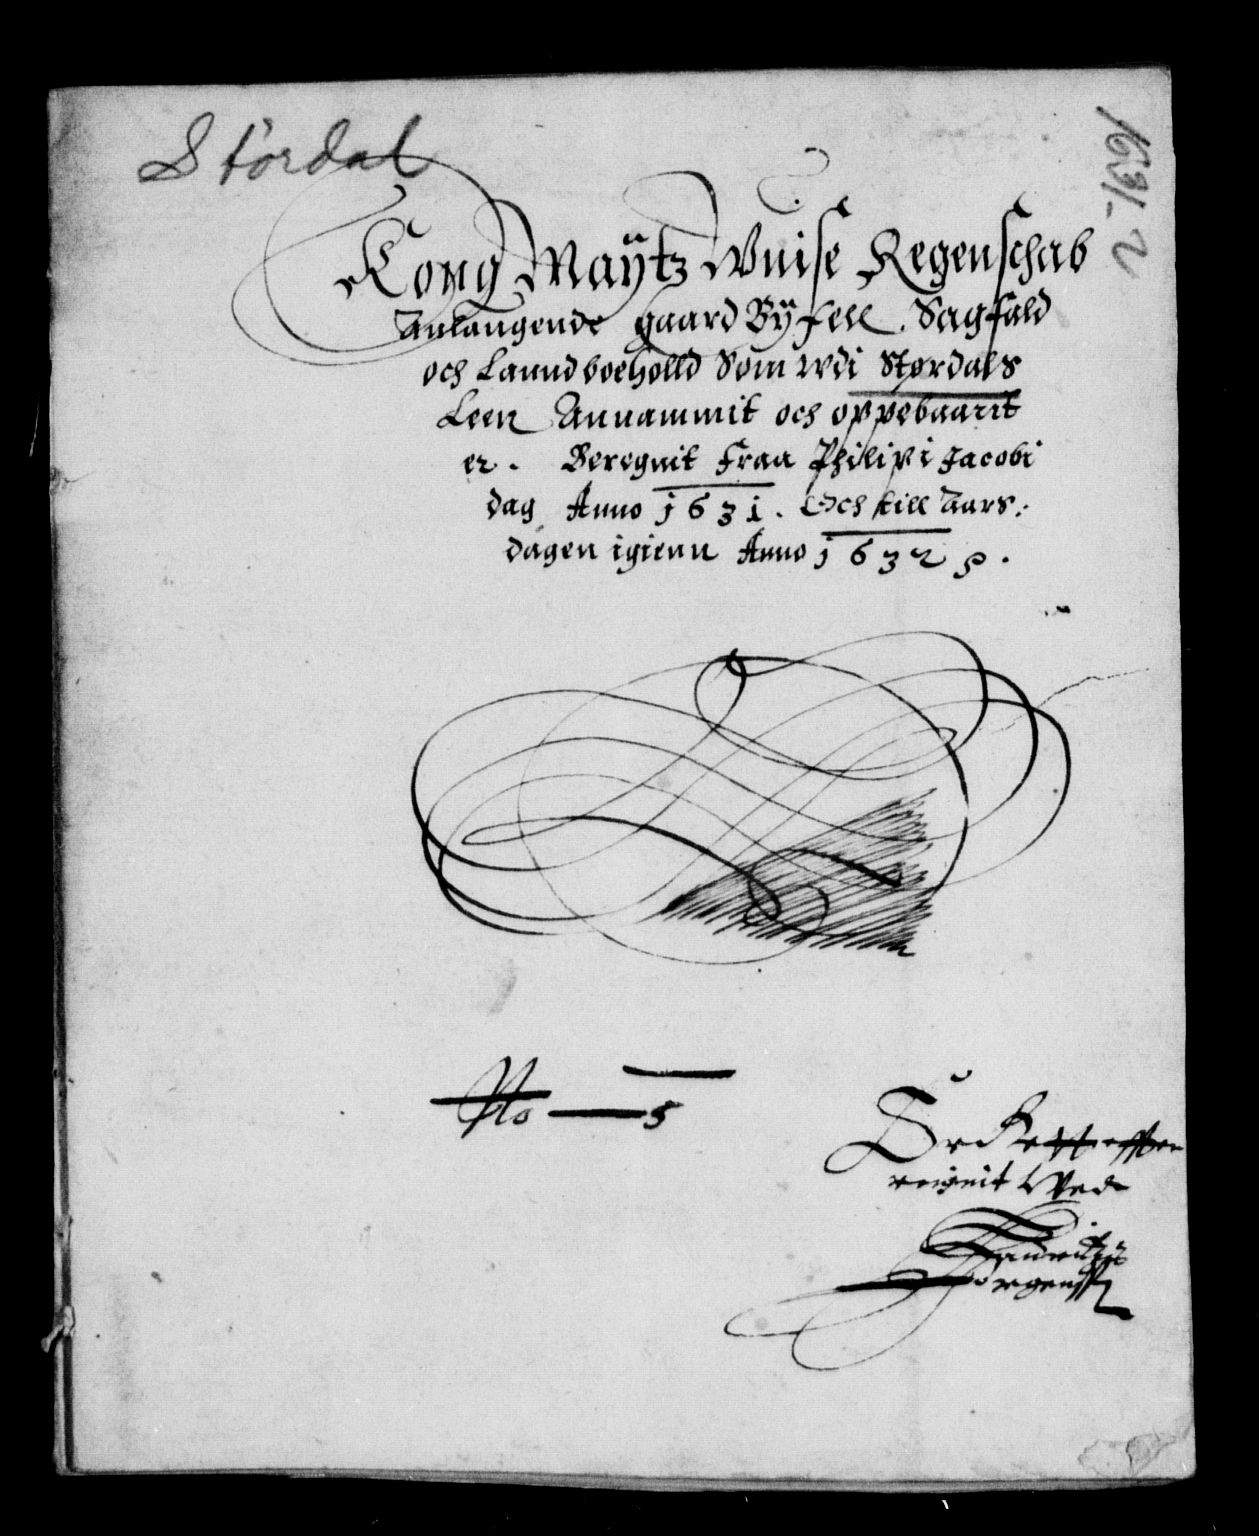 Stördal
1631-2
Kong Maÿtz Wuise Regenschab
Anlangende gaard Bÿfell, Sagfald
och Lanndboeholld Som wdi Størdals
Leen Annammit och oppebaarit
er. Beregnit Fraa Philipi Jacobi
dag Anno 1631. Och till Aars:
dagen igienn Anno 1632
No 5
reignit Ved
Lauritz
Jørgenss